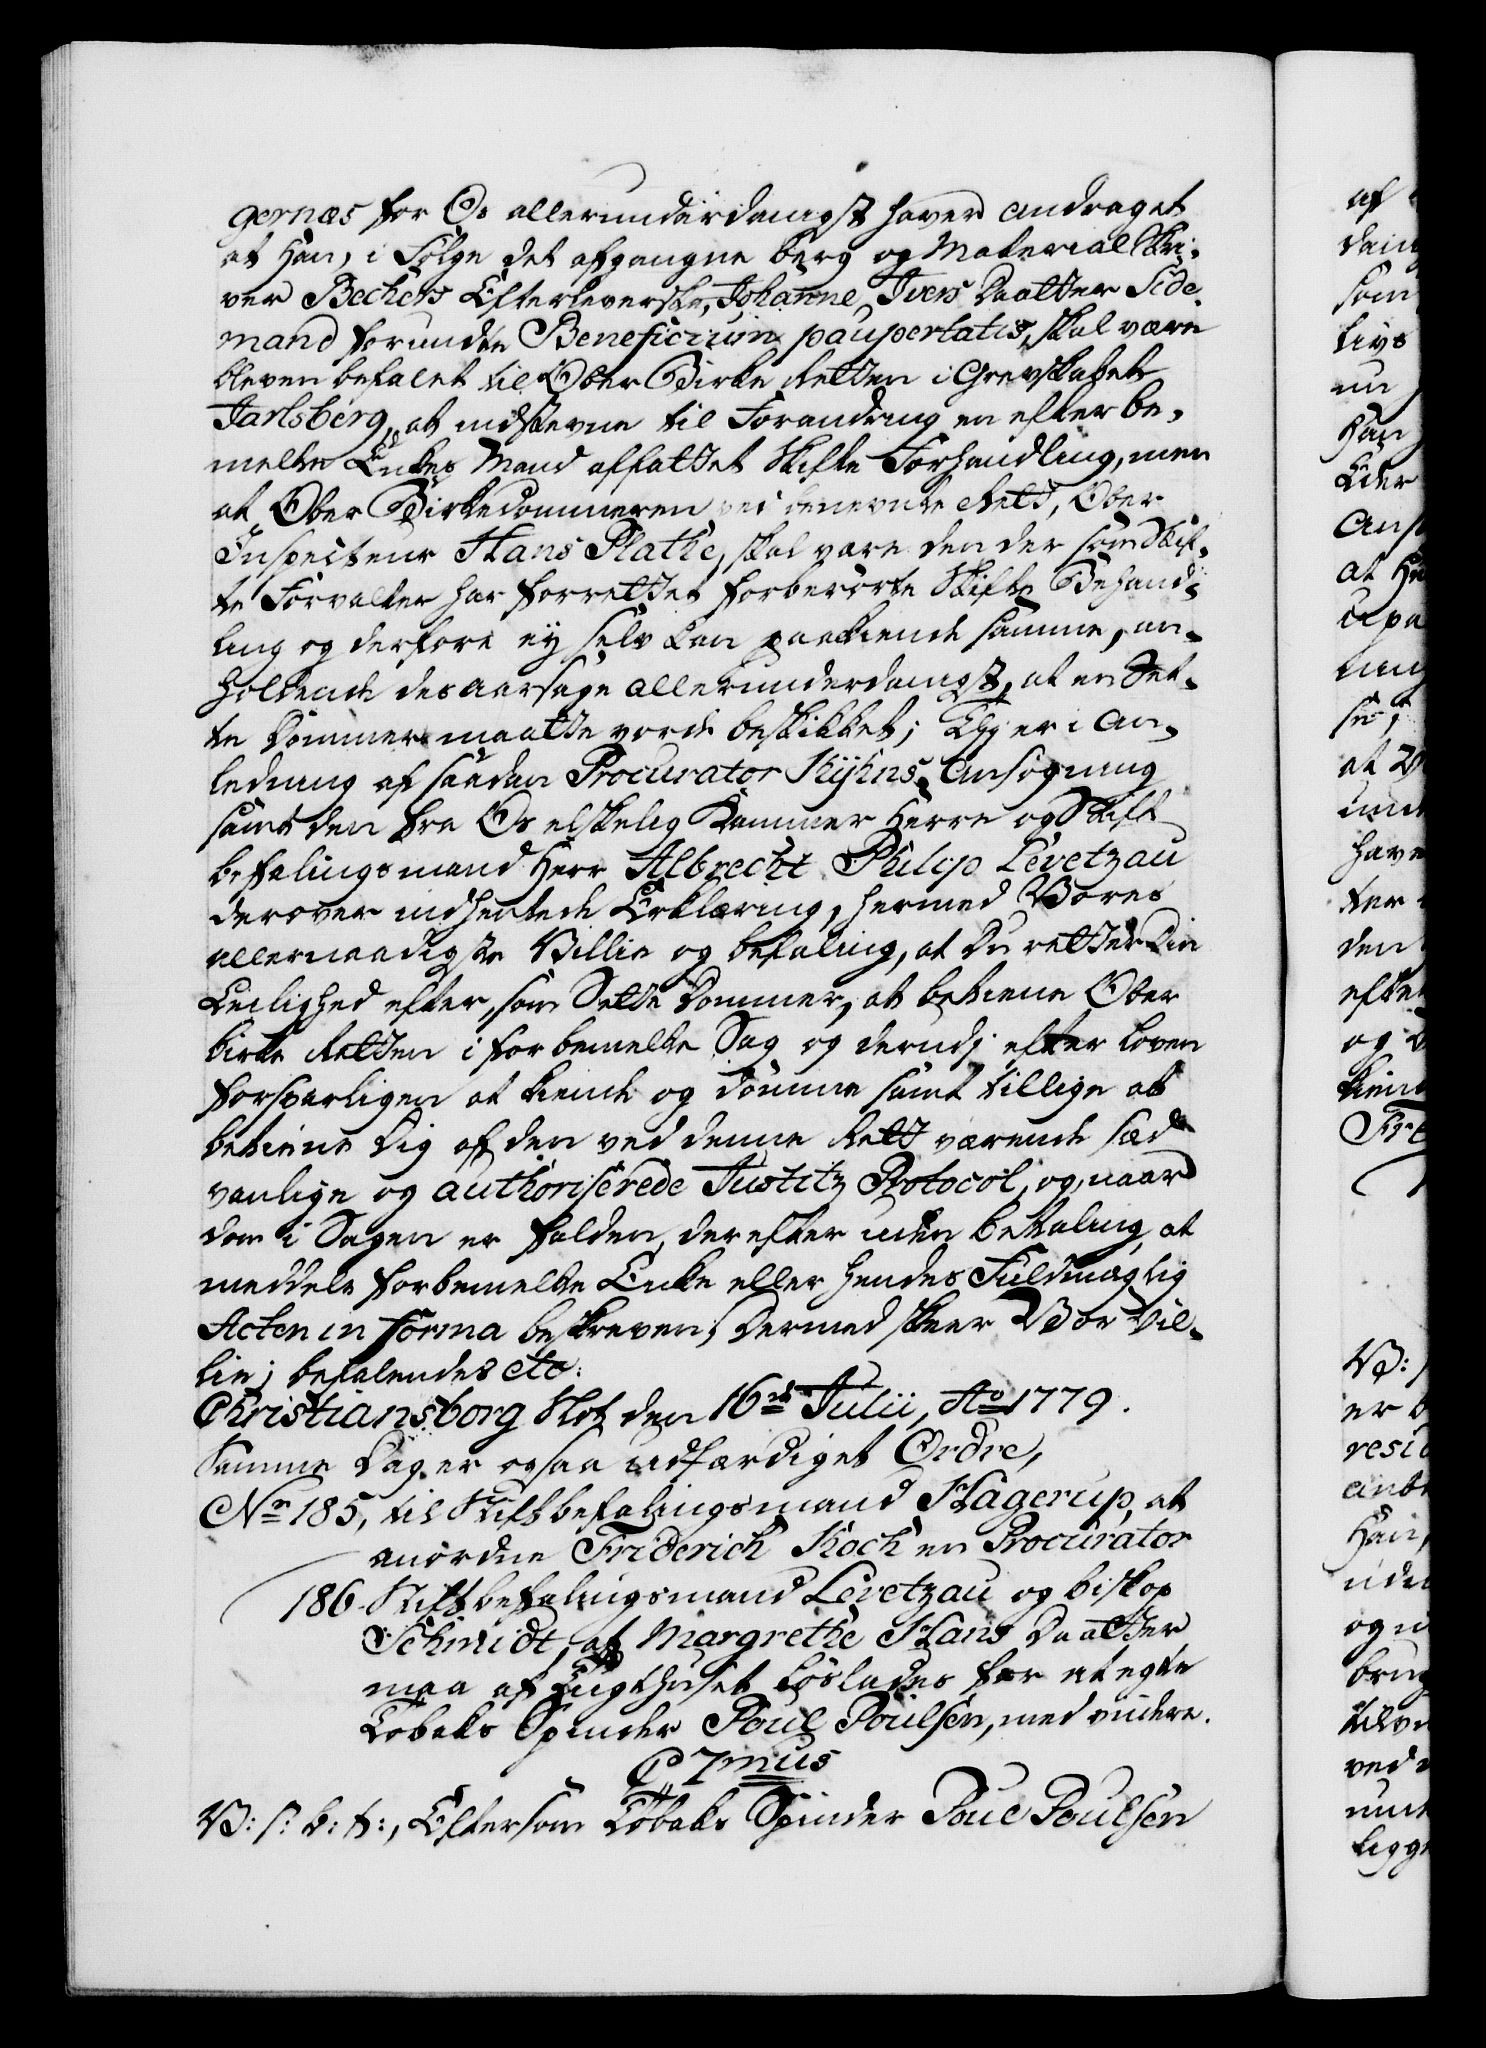 gernæs for Os allerunderdanigst haver andraget
at Han, i Følge det afgangne Berg og Material Skri-
ver Bechers Efterleverske, Johanne Ivers Daatter Side-
mand forundte Beneficium paupertatis, skal være
bleven befalet til Ober Birke Retten i Grevskabet
Jarlsberg, at indstevne til Forandring en efter be-
meldte Enkes Mand affattet Skifte Forhandling, men
at Ober Birkedommeren ved benevnte Rett, Ober
Inspecteur Hans Plathe, skal være den der som Skif-
te Forvalter har forrettet forberørte Skifte Behand-
ling og derfore ej selv kan paakiende samme, an-
holdende desaarsage allerunderdanigst, at en Set-
te Dommer maatte vorde beskikket; Thj er i An-
ledning af saadan Procurator Kyhns Ansøgning
samt den fra Os elskelig Kammer Herre og Stift
befalingsmand Herr Albrecht Philip Levetzau
derover indhentede Erklæring, hermed Vores
allernaadigste Villie og befaling, at Du retter Din
Leilighed efter, som Sette Dommer, at betiene Ober
birke Retten i forbemeldte Sag og derudj efter Loven
forsvarligen at kiende og dømme samt tillige at
betiene Dig af den ved denne Rett værende sæd
vanlige og authoriserede Justitz Protocol, og naar
dom i Sagen er falden, derefter uden betaling at
meddele forbemeldte Enke eller hendes Fuldmægtig
Acten in forma beskreven, Dermed skeer Vor Vil-
lie; befalendes etc:
Christiansborg Slot den 16de Julii, Ao 1779.
Samme Dag er ogsaa udfærdiget Ordre,
No 185, til Stiftbefalingsmand Hagerup, at
anordne Friderich Koch en Procurator
186 Stiftbefalingsmand Levetzau og biskop
Schmidt, at Margrethe Hans Daatter
maa af Tugthuset løslades for at egte
Tobaks Spinder Poul Poulsen, med videre.
C 7mus
V: s: b: t:, Eftersom Tobaks Spinder Poul Poulsen